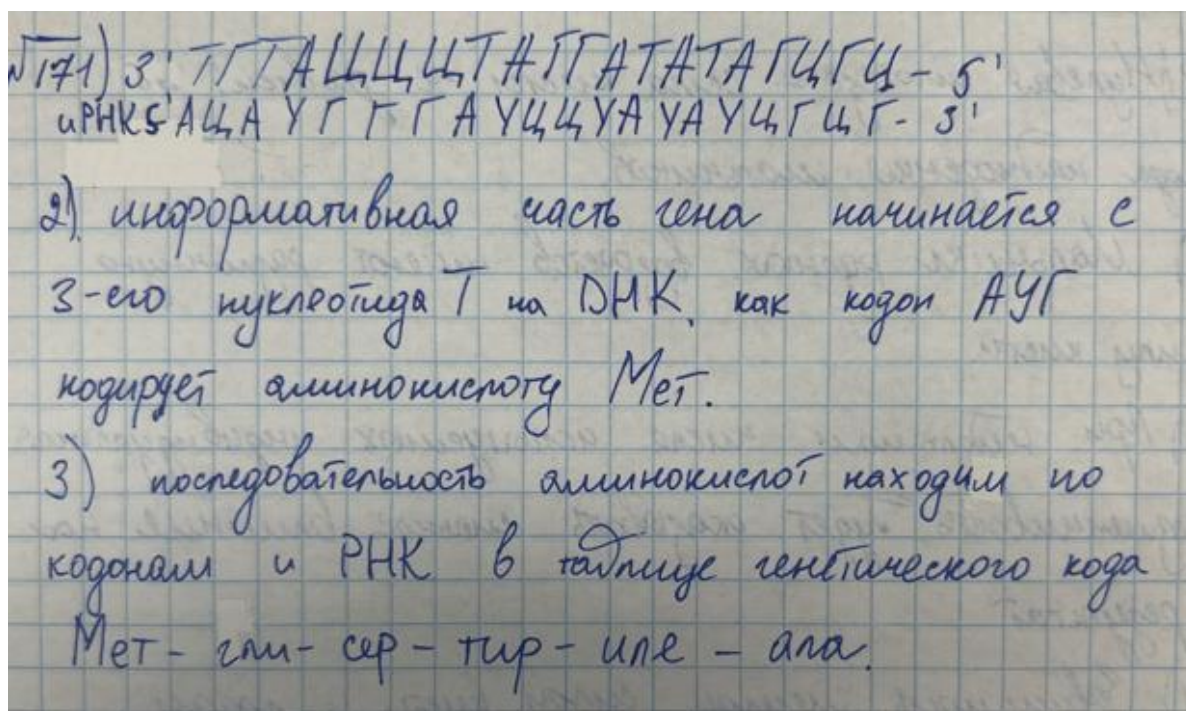 √171) 3' ТГТАЦЦЦТАГГАТАТАГЦГЦ- 5'
иРНК5' АЦАУГГГАУЦЦУАУАУЦГЦГ- 3'
2) информативная часть гена начинается с
3-его нуклеотида Т на ДНК, как кодон АУГ
кодирует аминокислоту Мет.
3) последовательность аминокислот находим по
кодонам и РНК в таблице генетического кода
Мет- гли- сер - тир - иле - ала.